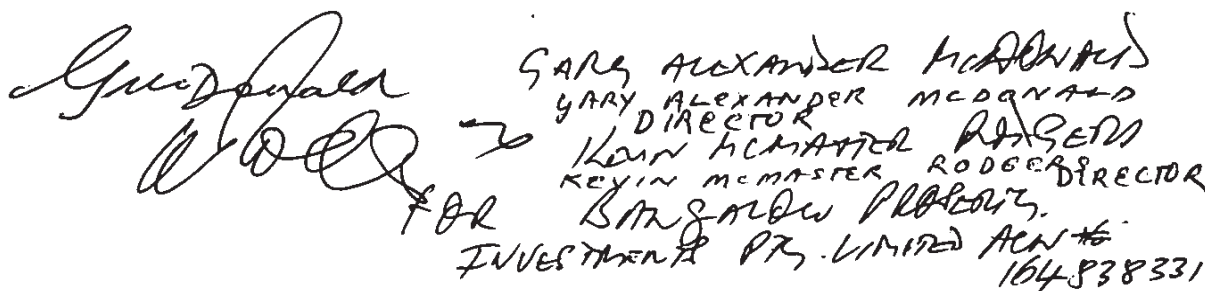 GMcDonald
GARY ALEXANDER MCDONALD
GARY ALEXANDER MCDONALD
DIRECTOR
KEVIN MCMASTER RODGERS
KEVIN MCMASTER RODGERS DIRECTOR
FOR BANGALOW PROPERTY
INVESTMENTS PTY. LIMITED ACN
164838331